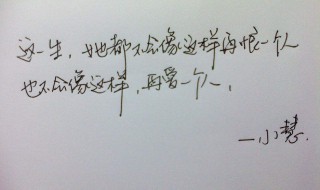 这一生，她都不会像这样再恨一个人
也不会像这样，再爱一个人。
—小慧.